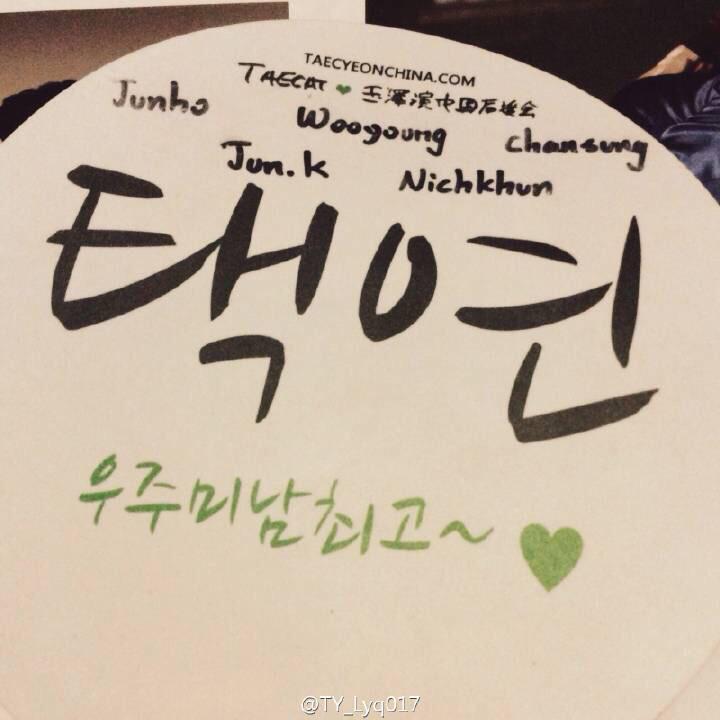 TAECYEONCHINA.COM
TAECAT ♥ 玉澤演中国后援会
Junho Wooyoung Chansung
Jun.K Nichkhun
택연
우주미남최고~ ♥
@TY_Lyq017